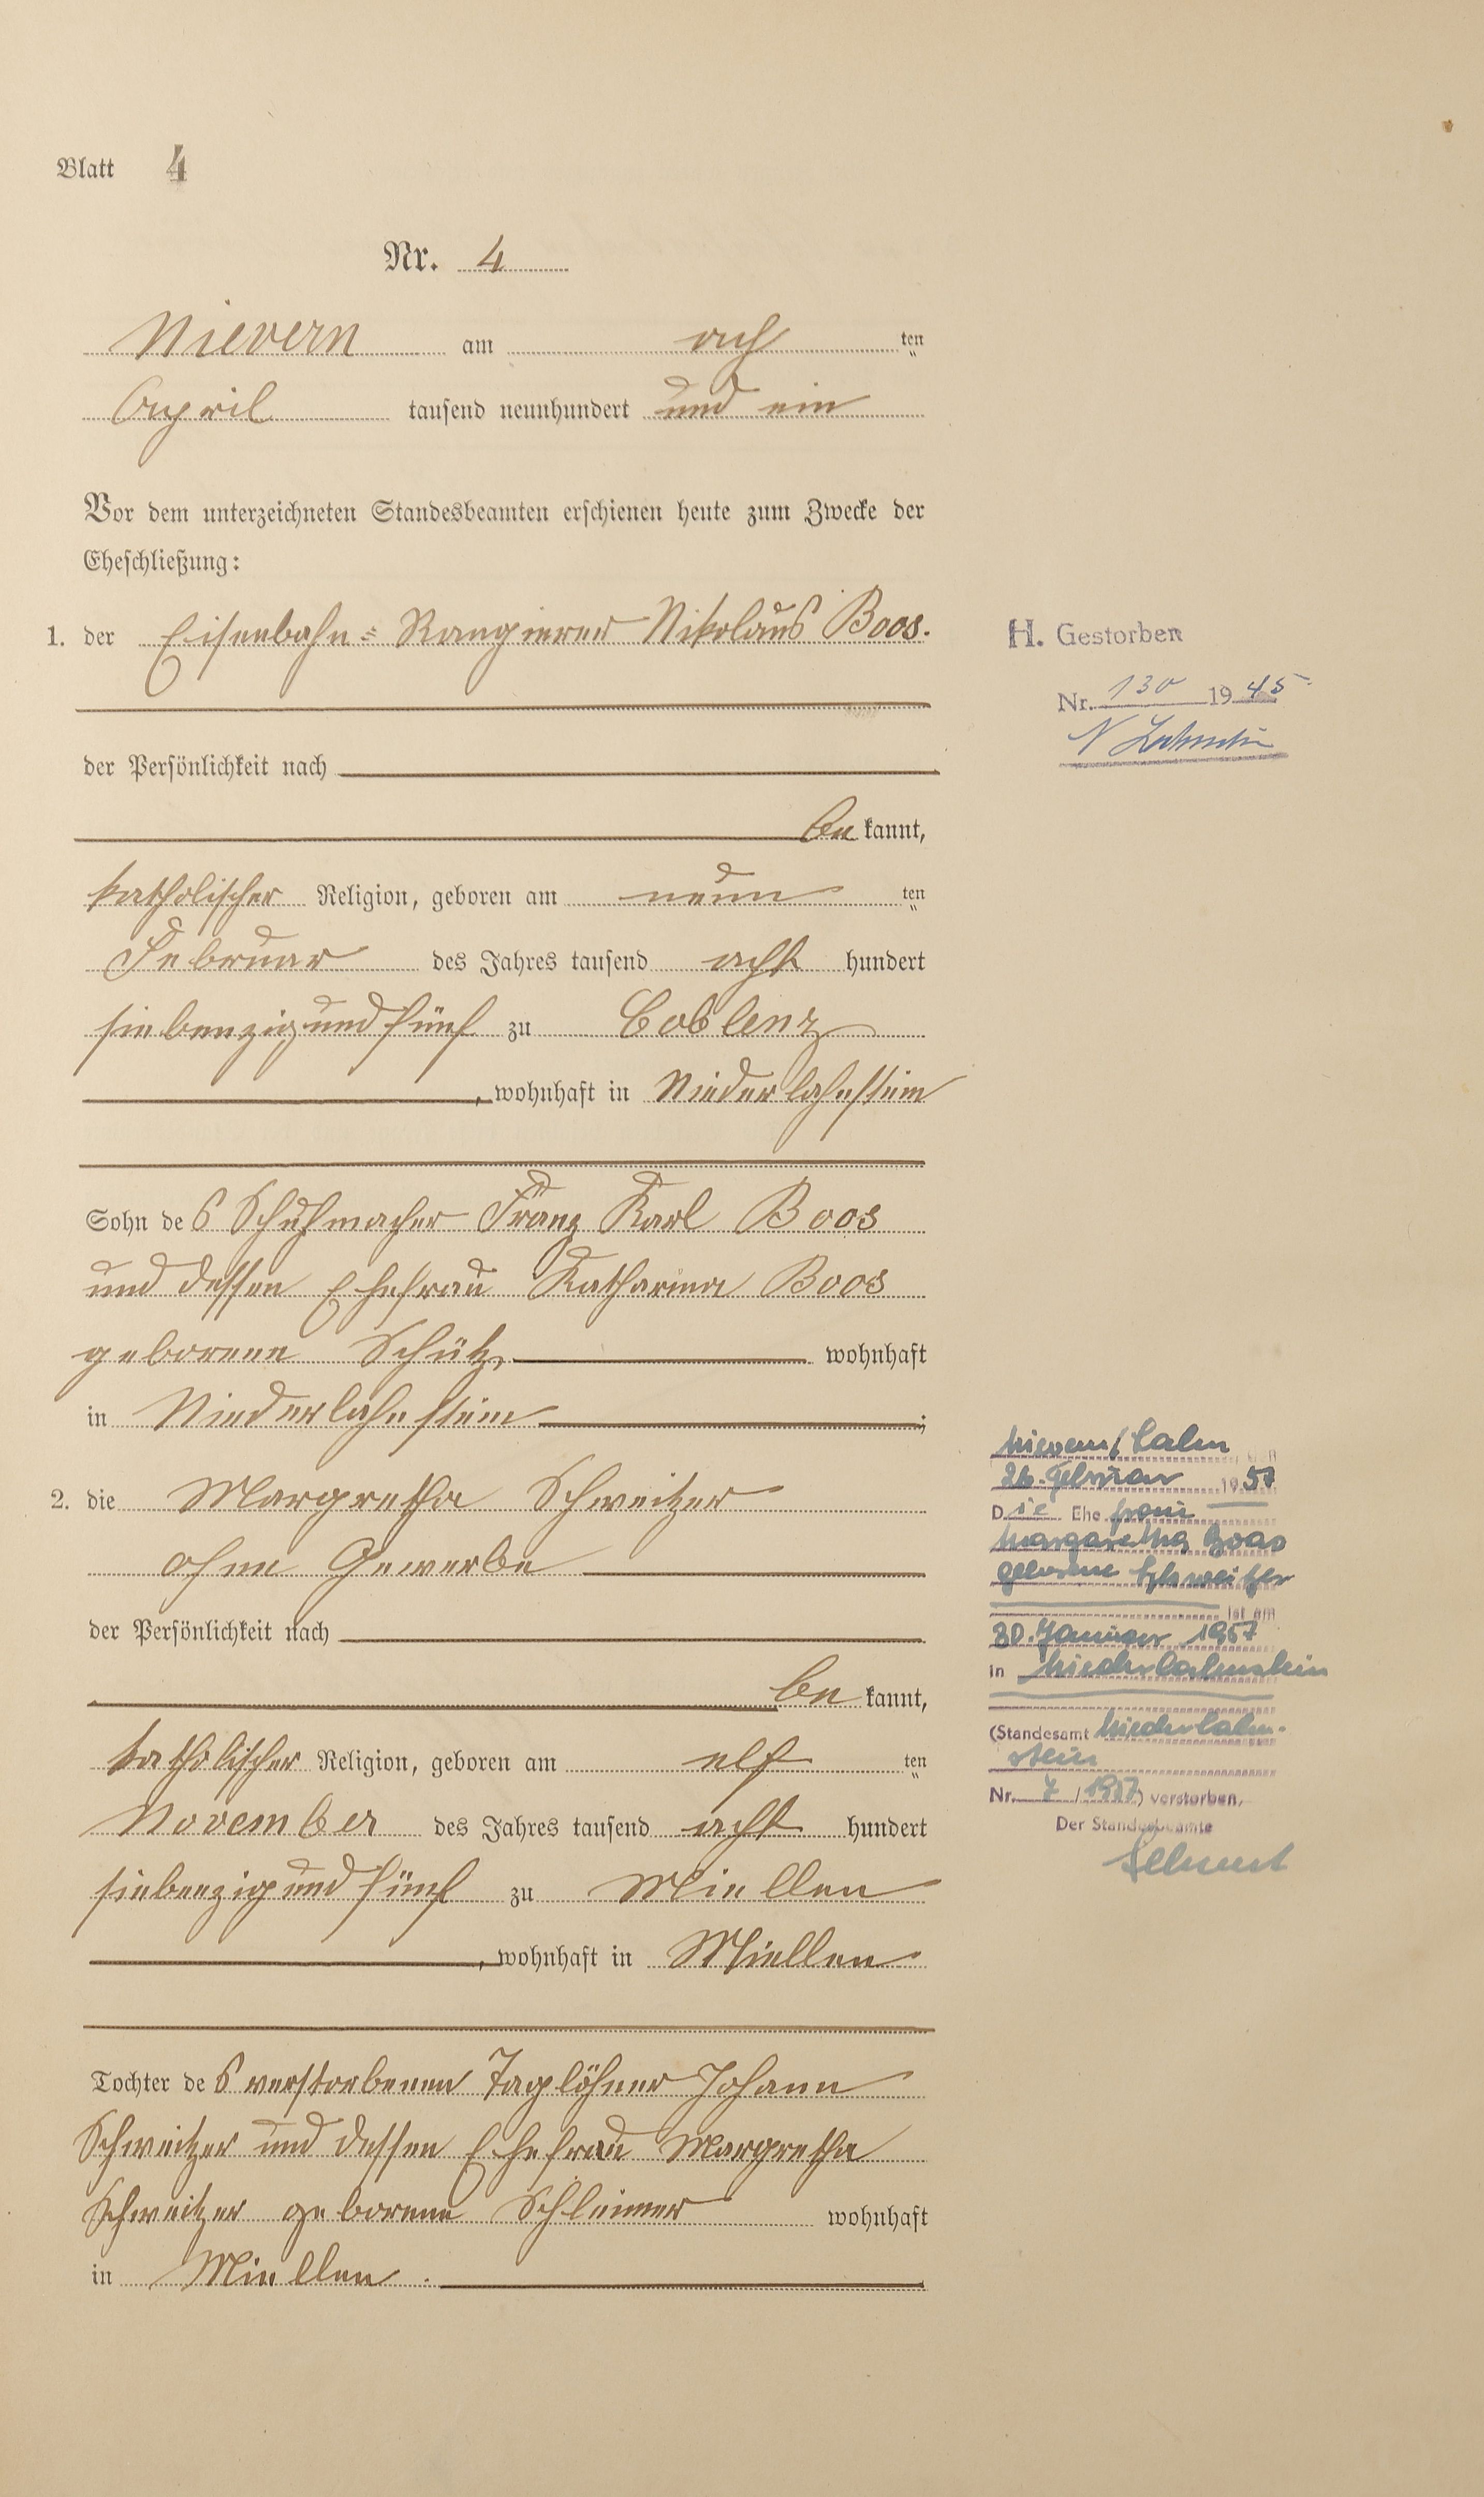 Blatt 4
Nr. 4
Nievern am ach ten
April tausend neunhundert und ein
Vor dem unterzeichneten Standesbeamten erschienen heute zum Zwecke der
Eheschließung:
1. der Eisenbahn= Rangierer Nikolaus Boos.
der Persönlichkeit nach
be kannt,
katholischer Religion, geboren am neun ten
Februar des Jahres tausend acht hundert
siebenzig und fünf zu Coblenz
, wohnhaft in Niederlahnstein
Sohn des Schuhmacher Franz Karl Boos
und dessen Ehefrau Katharina Boos
geborene Schütz, wohnhaft
in Niederlahnstein ;
2. die Margretha Schweitzer
ohne Gewerbe
der Persönlichkeit nach
be kannt,
katholischer Religion, geboren am elf ten
November des Jahres tausend acht hundert
siebenzig und fünf zu Miellen
, wohnhaft in Miellen
Tochter des verstorbenen Taglöhner Johann
Schweitzer und dessen Ehefrau Margretha
Schweitzer geborene Schleimer wohnhaft
in Miellen.
H. Gestorben
Nr. 130 1945
Nievern/Lahn, den
26. Februar 1957
Die Ehefrau
Margaretha Boos
geborene Schweitzer
ist am
30. Januar 1957
in Niederlahnstein
(Standesamt Niederlahn-
stein
Nr. 7 / 1957) verstorben.
Der Standesbeamte